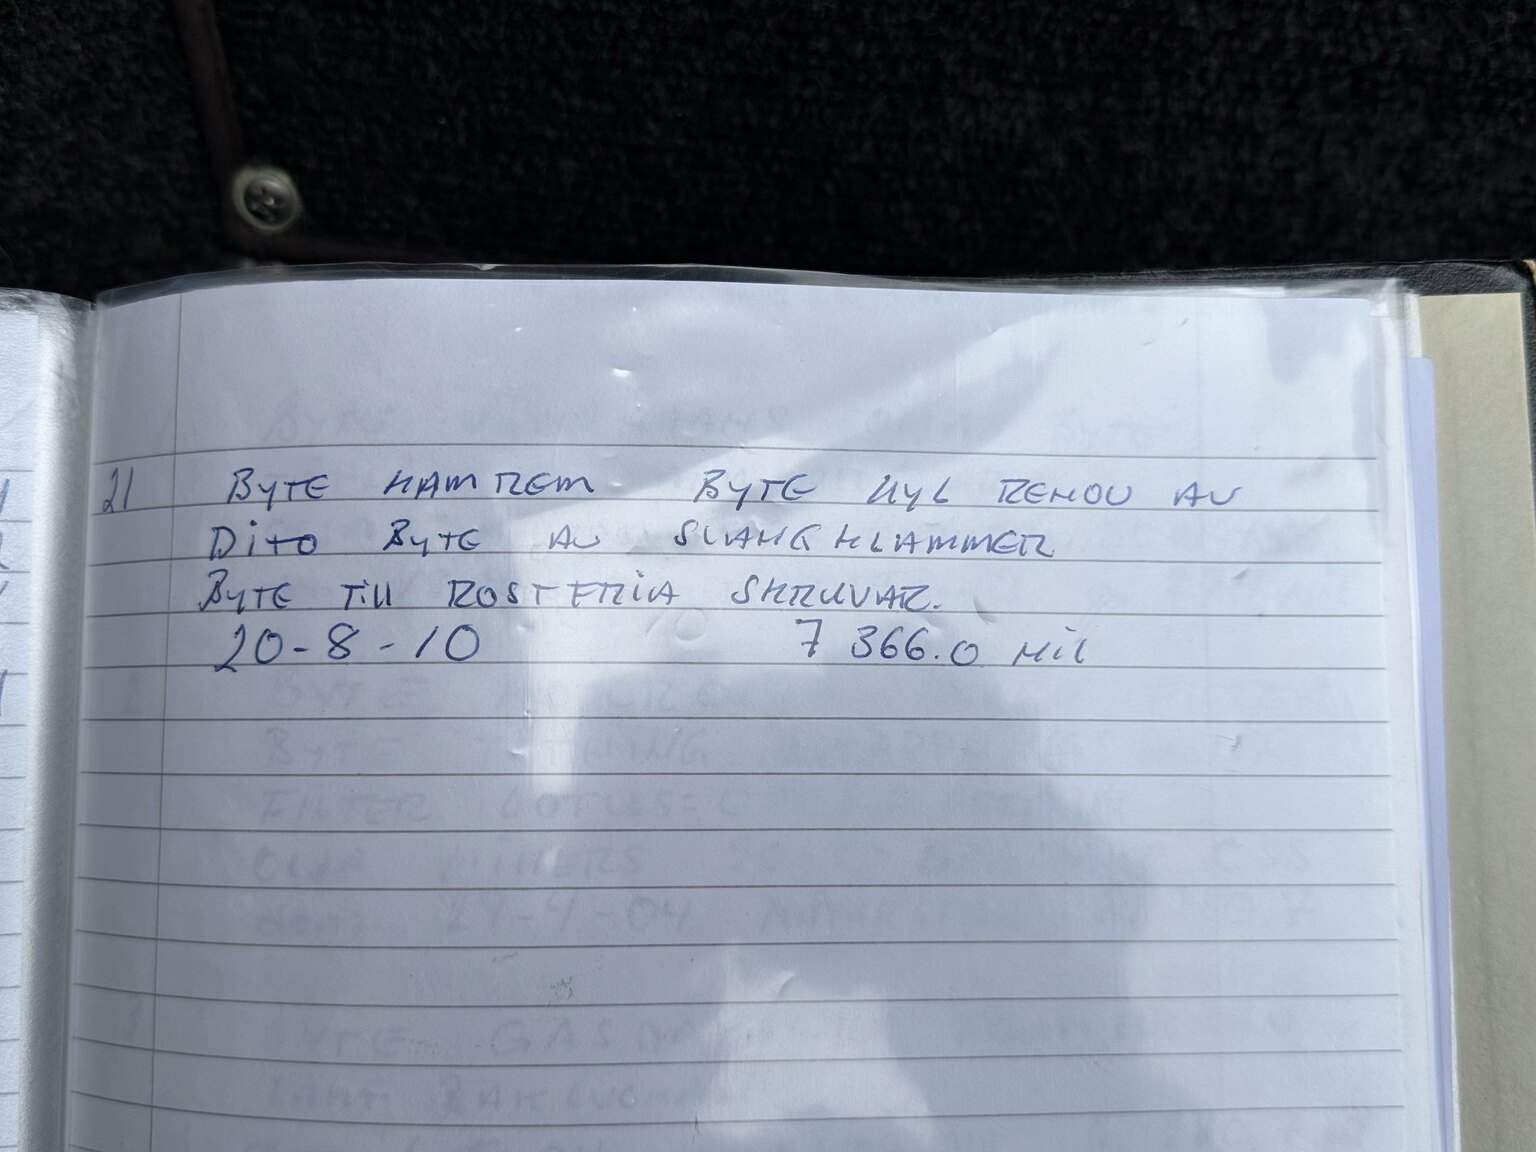 21 BYTE KAMREM BYTE KYL RENOV AV
DITO BYTE AV SLANGKLAMMER
BYTE TILL ROSTFRIA SKRUVAR.
20-8-10 7 366.0 MIL